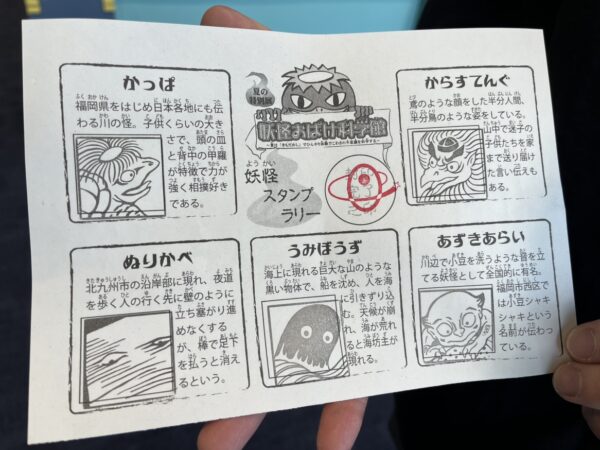 かっぱ
福岡県をはじめ日本各地にも伝
わる川の怪。子供くらいの大き
さで、頭の皿
と背中の甲羅
が特徴で力が
強く相撲好き
である。
夏の
特別展
妖怪おばけ科学館
妖怪
スタンプ
ラリー
からすてんぐ
鳶のような顔をした半分人間、
半分鳥のような姿をしている。
山中で迷子の
子供たちを家
まで送り届け
た言い伝えも
ある。
ぬりかべ
北九州市の沿岸部に現れ、夜道
を歩く人の行く先に壁のように
立ち塞がり進
めなくする
が、棒で足下
を払うと消え
るという。
うみぼうず
海上に現れる巨大な山のような
黒い物体で、船を沈め、人を海
に引きずり込
む。天候が崩
れ、海が荒れ
ると海坊主が
現れる。
あずきあらい
川辺で小豆を洗うような音を立
てる妖怪として全国的に有名。
福岡市西区で
は小豆シャキ
シャキという
名前が伝わっ
ている。